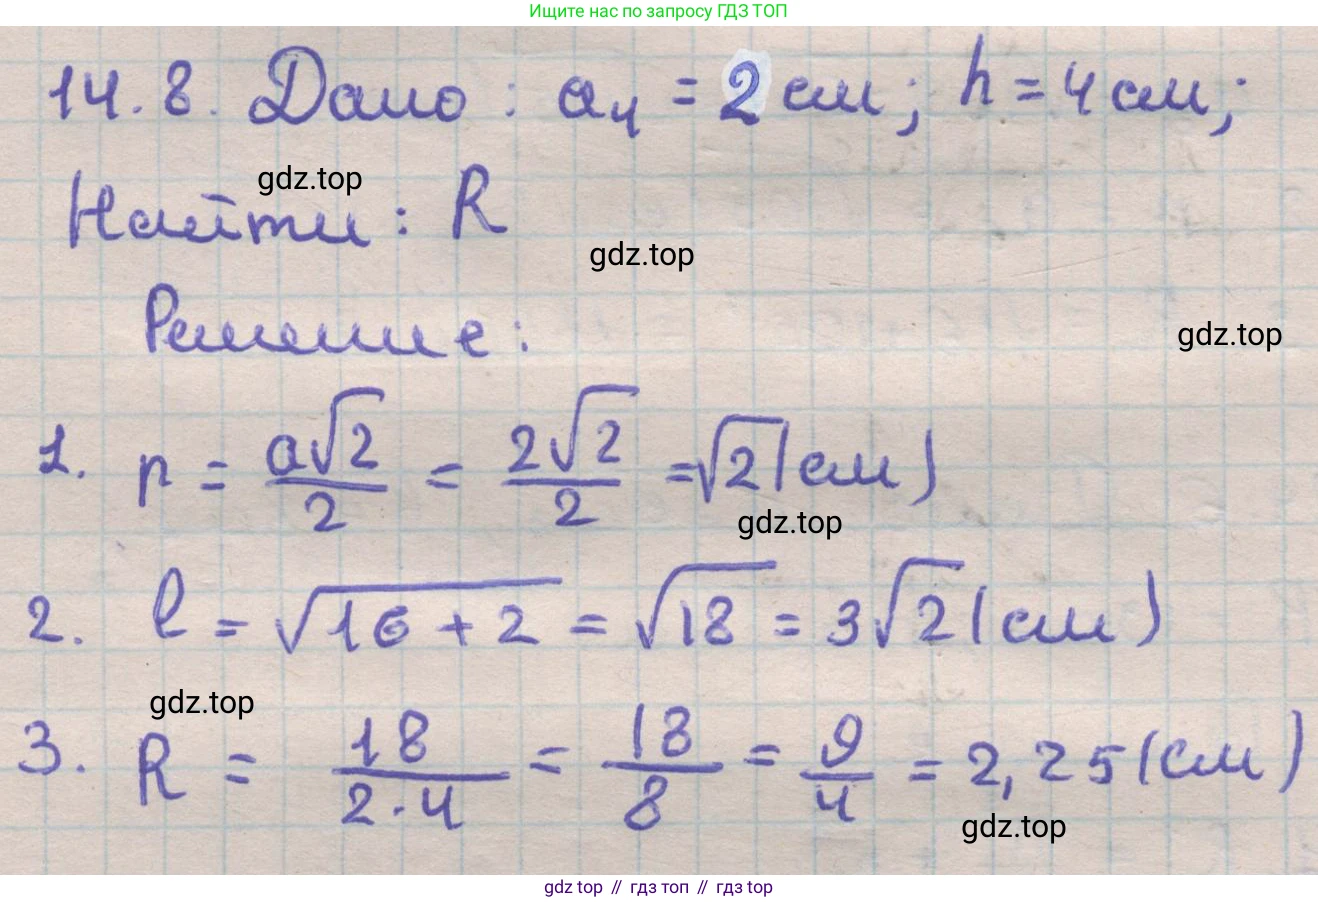 Ищите нас по запросу ГДЗ ТОП
14.8. Дано: a₄ = 2 см; h = 4 см;
gdz.top
Найти: R
gdz.top
Решение:
gdz.top
1. r = a√2/2 = 2√2/2 = √2 (см)
gdz.top
2. l = √16 + 2 = √18 = 3√2 (см)
gdz.top
3. R = 18/2·4 = 18/8 = 9/4 = 2,25 (см)
gdz.top
gdz top // гдз топ // гдз top